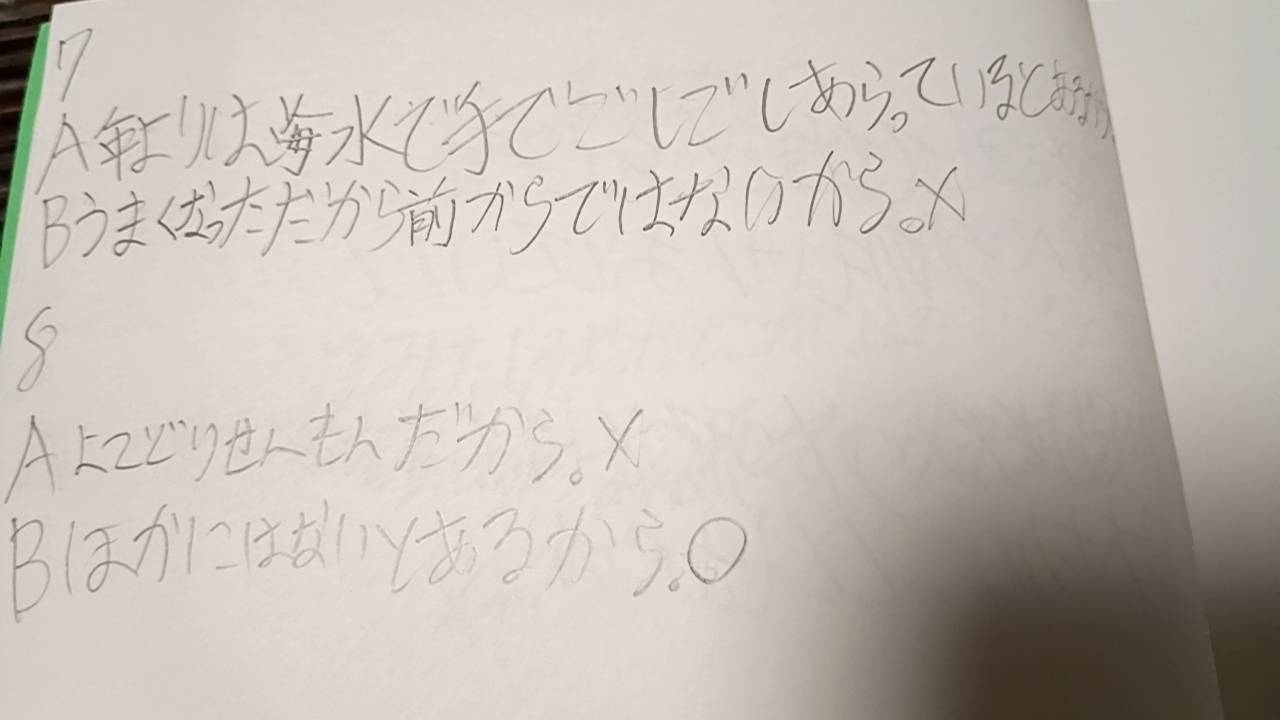 7
A 年よりは海水で手でごしごしあらっているとある
Bうまくなっただから前からではないから。×
8
AよこどりせんもんだからX。
Bほかにはないとあるから。○